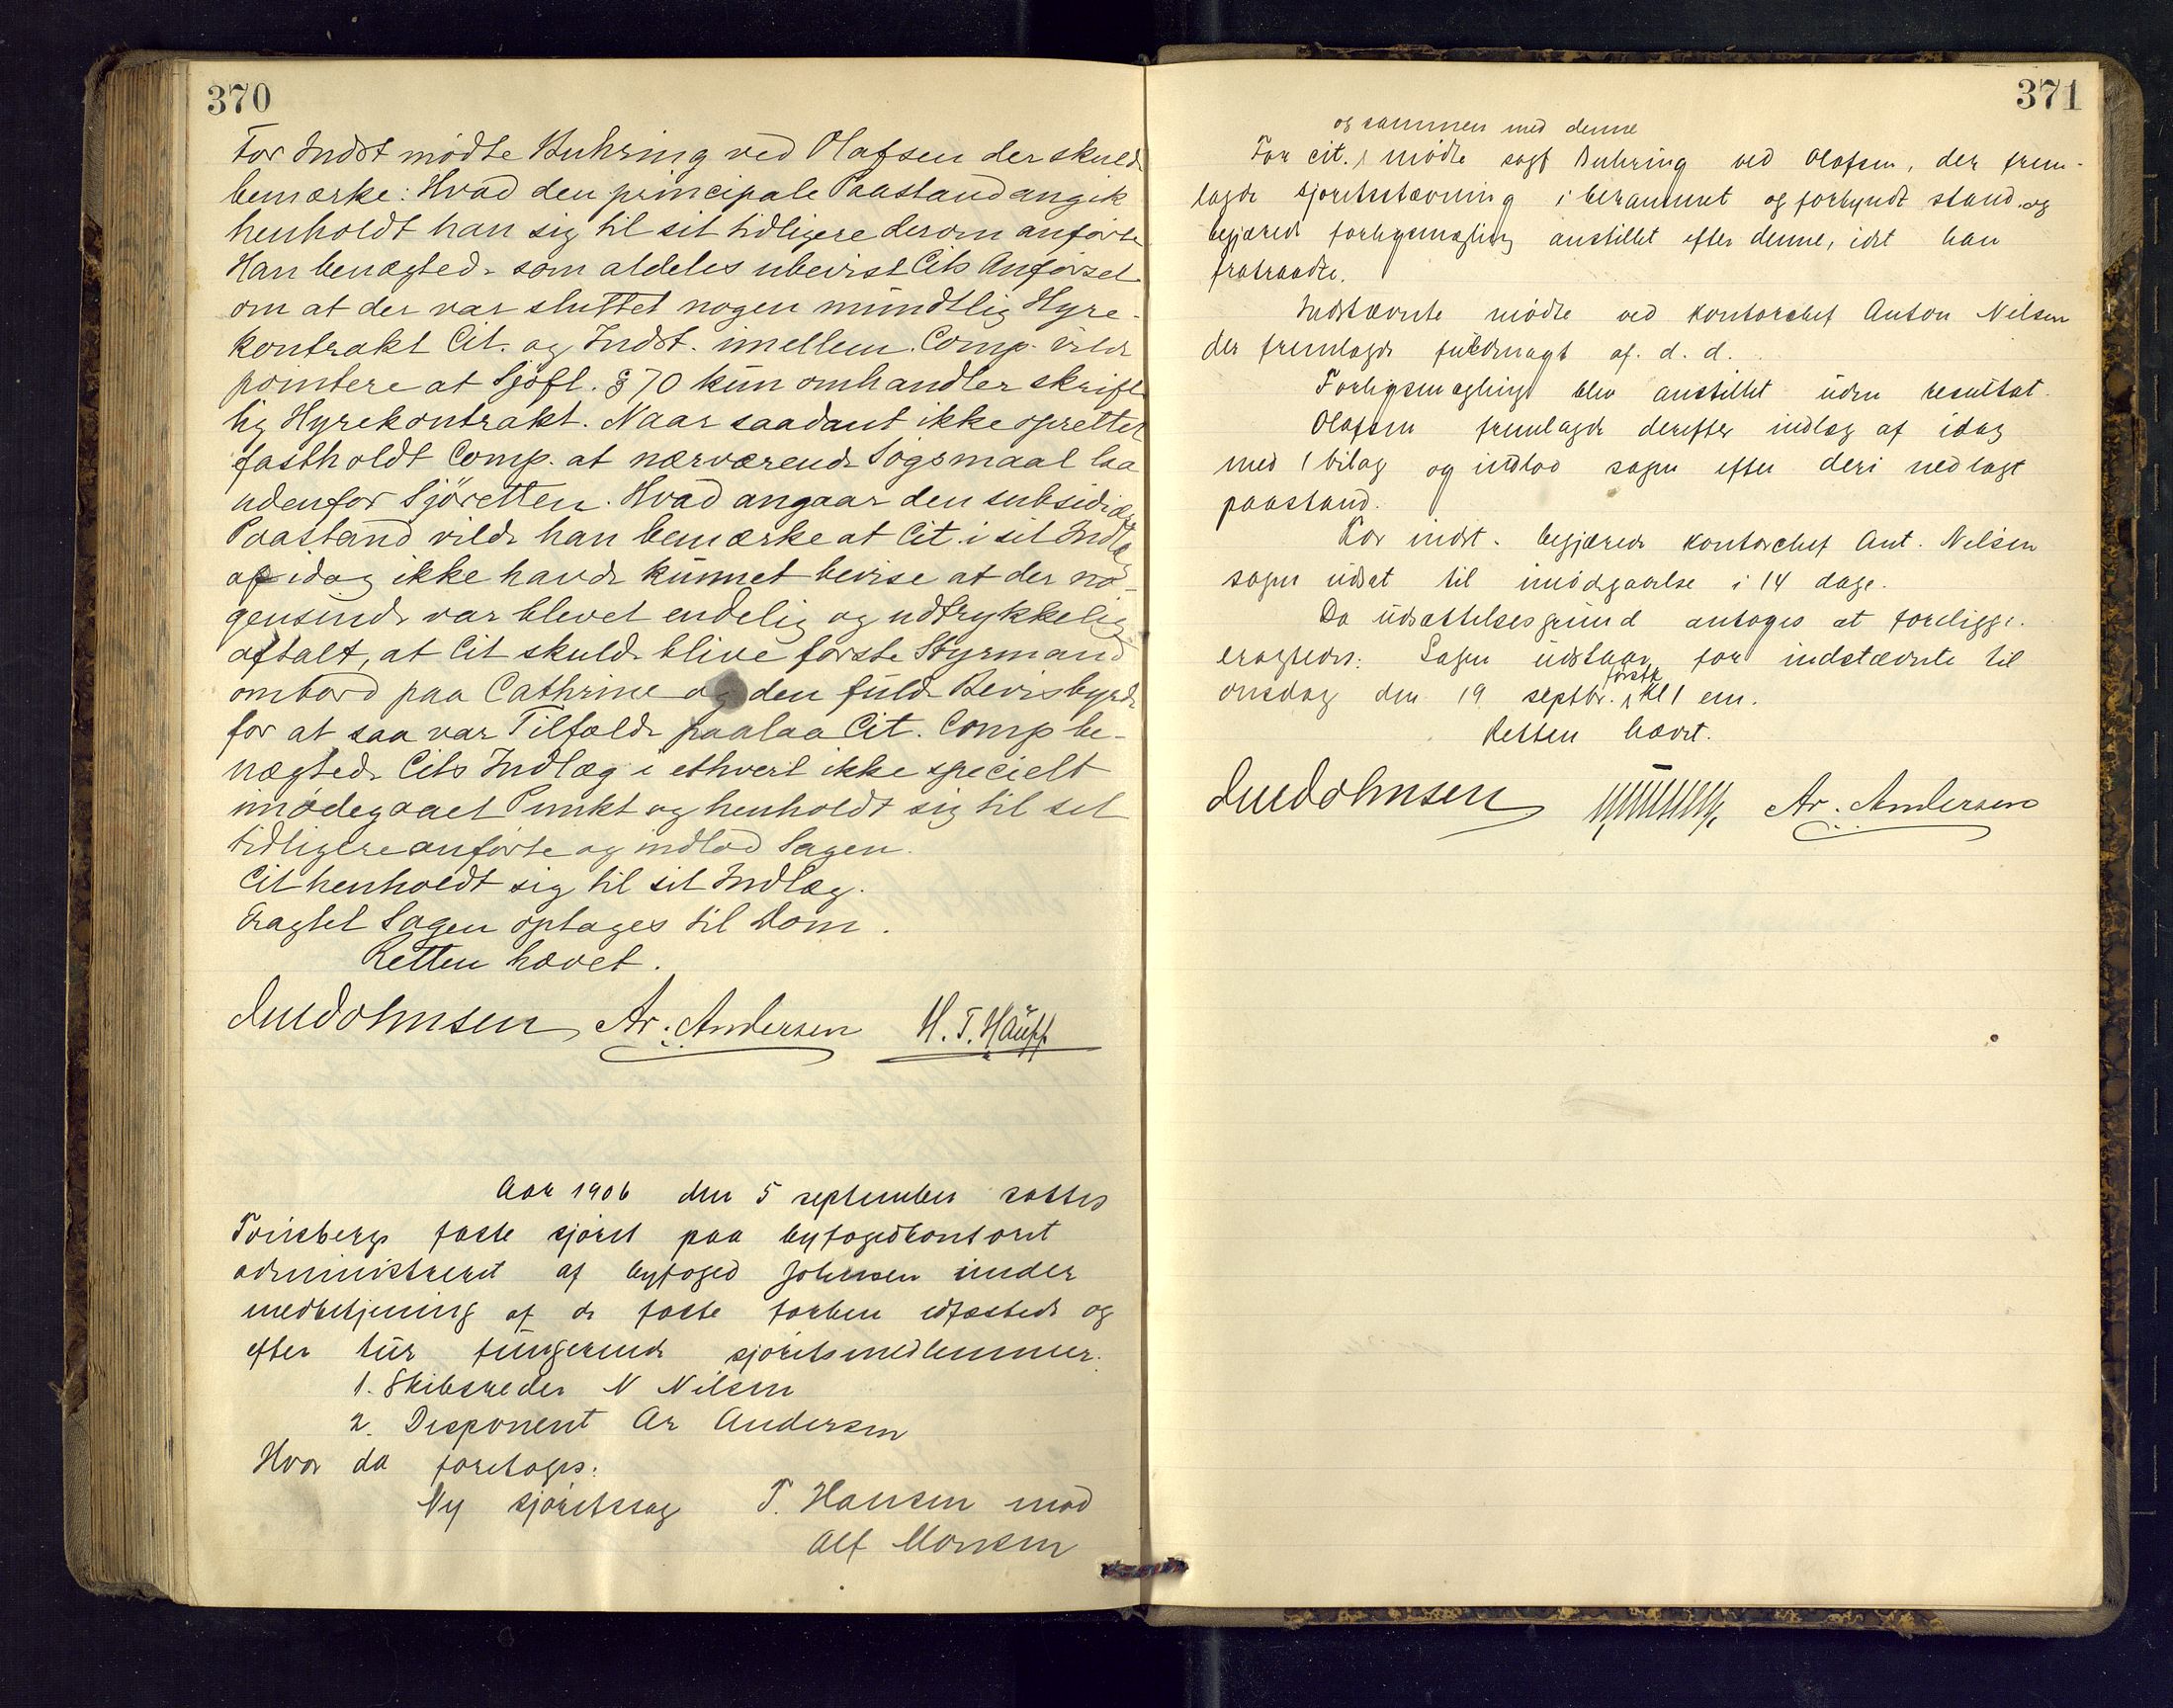 370
For Indst mødte Buhring ved Olafsen der skulde
bemærke: Hvad den principale Paastand angik
henholdt han sig til sit tidligere derom anførte
Han benægtede som aldeles ubevist Cits Anførsel
om at der var sluttet nogen mundtlig Hyre-
kontrakt Cit. og Indst. imellem. Comp. vilde
pointere at Sjøfl. § 70 kun omhandler skrift-
lig Hyrekontrakt. Naar saadant ikke oprettet
fastholdt Comp. at nærværende Søgsmaal laa
udenfor Sjøretten. Hvad angaar den subsidiære
Paastand vilde han bemærke at Cit. i sit Indlæg
af idag ikke havde kunnet bevise at der no-
gensinde var blevet endelig og udtrykkelig
aftalt, at Cit skulde blive første Styrmand
ombord paa Cathrine og den fulde Bevisbyrde
for at saa var Tilfælde paalaa Cit. Comp be-
nægtede Cits Indlæg i ethvert ikke specielt
imødegaaet Punkt og henholdt sig til sit
tidligere anførte og indlod Sagen.
Cit henholdt sig til sit Indlæg.
Eragtet Sagen optages til Dom.
Retten hævet.
Johnsen Ar. Andersen H. T. Hauff
Aar 1906 den 5 september sattes
Tønsbergs faste sjøret paa byfogedkontoret
administreret af byfoged Johnsen under
medbetjening af de faste forhen edfæstede og
efter tur fungerende sjøretsmedlemmer.
1. Skibsreder N Nilsen
2. Disponent Ar Andersen
Hvor da foretoges:
Ny sjøretssag T. Hansen mod
Alf Monsen
371
og sammen med denne
For cit. mødte sagf Buhring ved Olafsen, der frem-
lagde sjøretsstævning i berammet og forkyndt stand og
begjærede forligsmægling anstillet efter denne, idet han
fratraadte.
Indstævnte mødte ved kontorchef Anton Nilsen
der fremlagde fuldmagt af d. d.
Forligsmægling blev anstillet uden resultat.
Olafsen fremlagde derefter indlæg af idag
med 1 bilag og indlod sagen efter deri nedlagt
paastand.
For indst. begjærede kontorchef Ant. Nilsen
sagen udsat til imødegaaelse i 14 dage.
Da udsættelsesgrund antoges at foreligge.
eragtedes: Sagen udstaar for indstævnte til
første
onsdag den 19 septbr. kl 1 em.
Retten hævet.
Johnsen Ar. Andersen